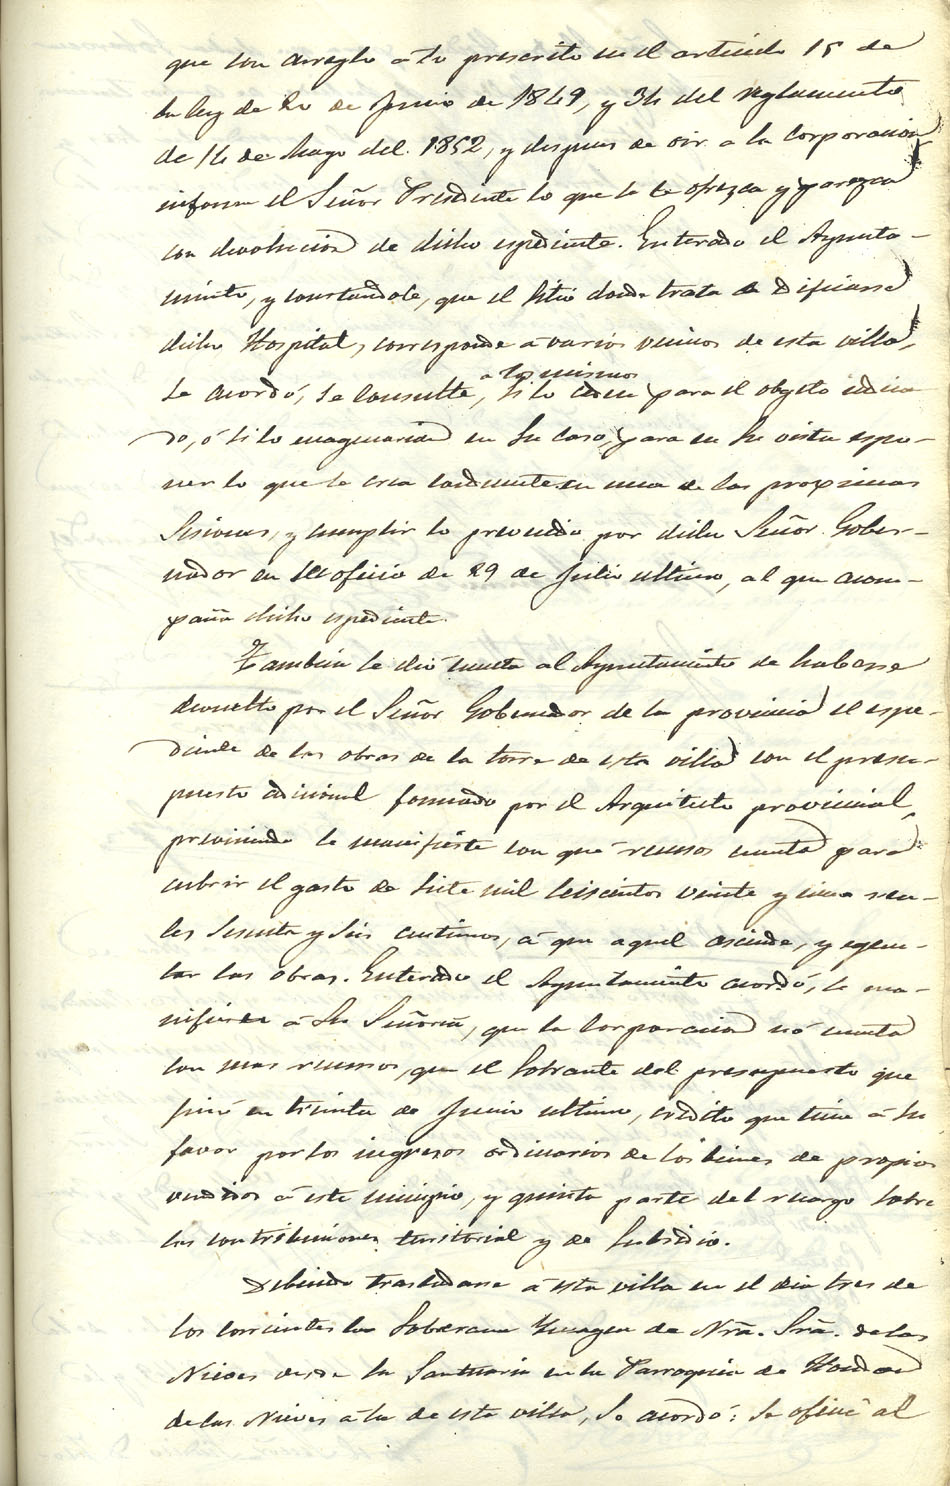 que con arreglo a lo prescrito en el articulo 15 de
la ley de 20 de Junio de 1849, y 34 del reglamento
de 14 de Mayo del 1852, y despues de oir a la Corporacion
informe el Señor Presidente lo que se le ofrezca y parezca
con devolucion de dicho espediente. Enterado el Ayunta-
miento, y constandole, que el sitio donde trata de edificarse
dicho Hospital, corresponde a varios vecinos de esta villa,
a los mismos
Se acordó, se consulte, si lo ceden para el objeto indica
do, ó si lo enagenarian en su caso, para en su vista espo-
ner lo que se crea conducente en una de las proximas
Sesiones, y cumplir lo prevenido por dicho Señor Gober-
nador en su oficio de 29 de Julio ultimo, al que acom-
paña dicho espediente.
Tambien se dió cuenta al Ayuntamiento de haberse
devuelto por el Señor Gobernador de la provincia el espe-
diente de las obras de la torre de esta villa con el presu-
puesto adicional formado por el Arquitecto provincial,
previniendo se manifieste con que recursos cuenta para
cubrir el gasto de siete mil seiscientos veinte y un rea-
les sesenta y seis centimos, á que aquel asciende, y ejecu-
tar las obras. Enterado el Ayuntamiento acordó, se ma-
nifieste á Su Señoria, que la Corporacion no cuenta
con mas recursos, que el sobrante del presupuesto que
finó en treinta de Junio ultimo, credito que tiene á su
favor por los ingresos ordinarios de los bienes de propios
vendidos á este municipio, y quinta parte del recargo sobre
las contribuciones territorial y de Subsidio.
Debiendo trasladarse á esta villa en el dia tres de
los corrientes la Soberana Ymagen de Nrã. Srã. de las
Nieves desde su Santuario en la Parroquia de Hondon
de las Nieves á la de esta villa, Se acordó: Se oficie al